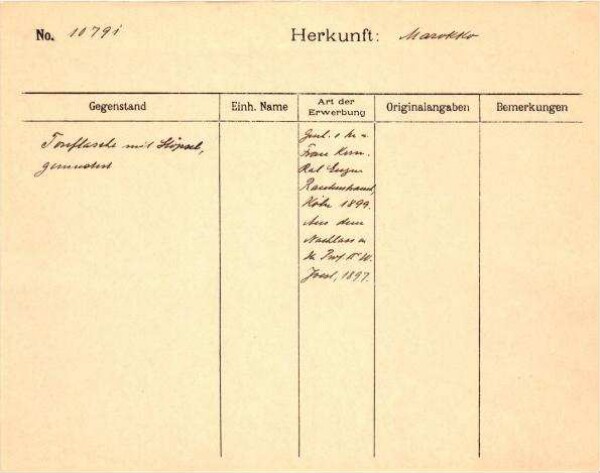 No. 10791 Herkunft: Marokko
Gegenstand Einh. Name Art der Erwerbung Originalangaben Bemerkungen
Tonflasche mit Stöpsel,
gemustert
Frau Kom.
Rat Eugen
Rautenstrauch,
Köln 1899.
Aus dem
Nachlass
Prof. Dr. W.
Joest, 1897.